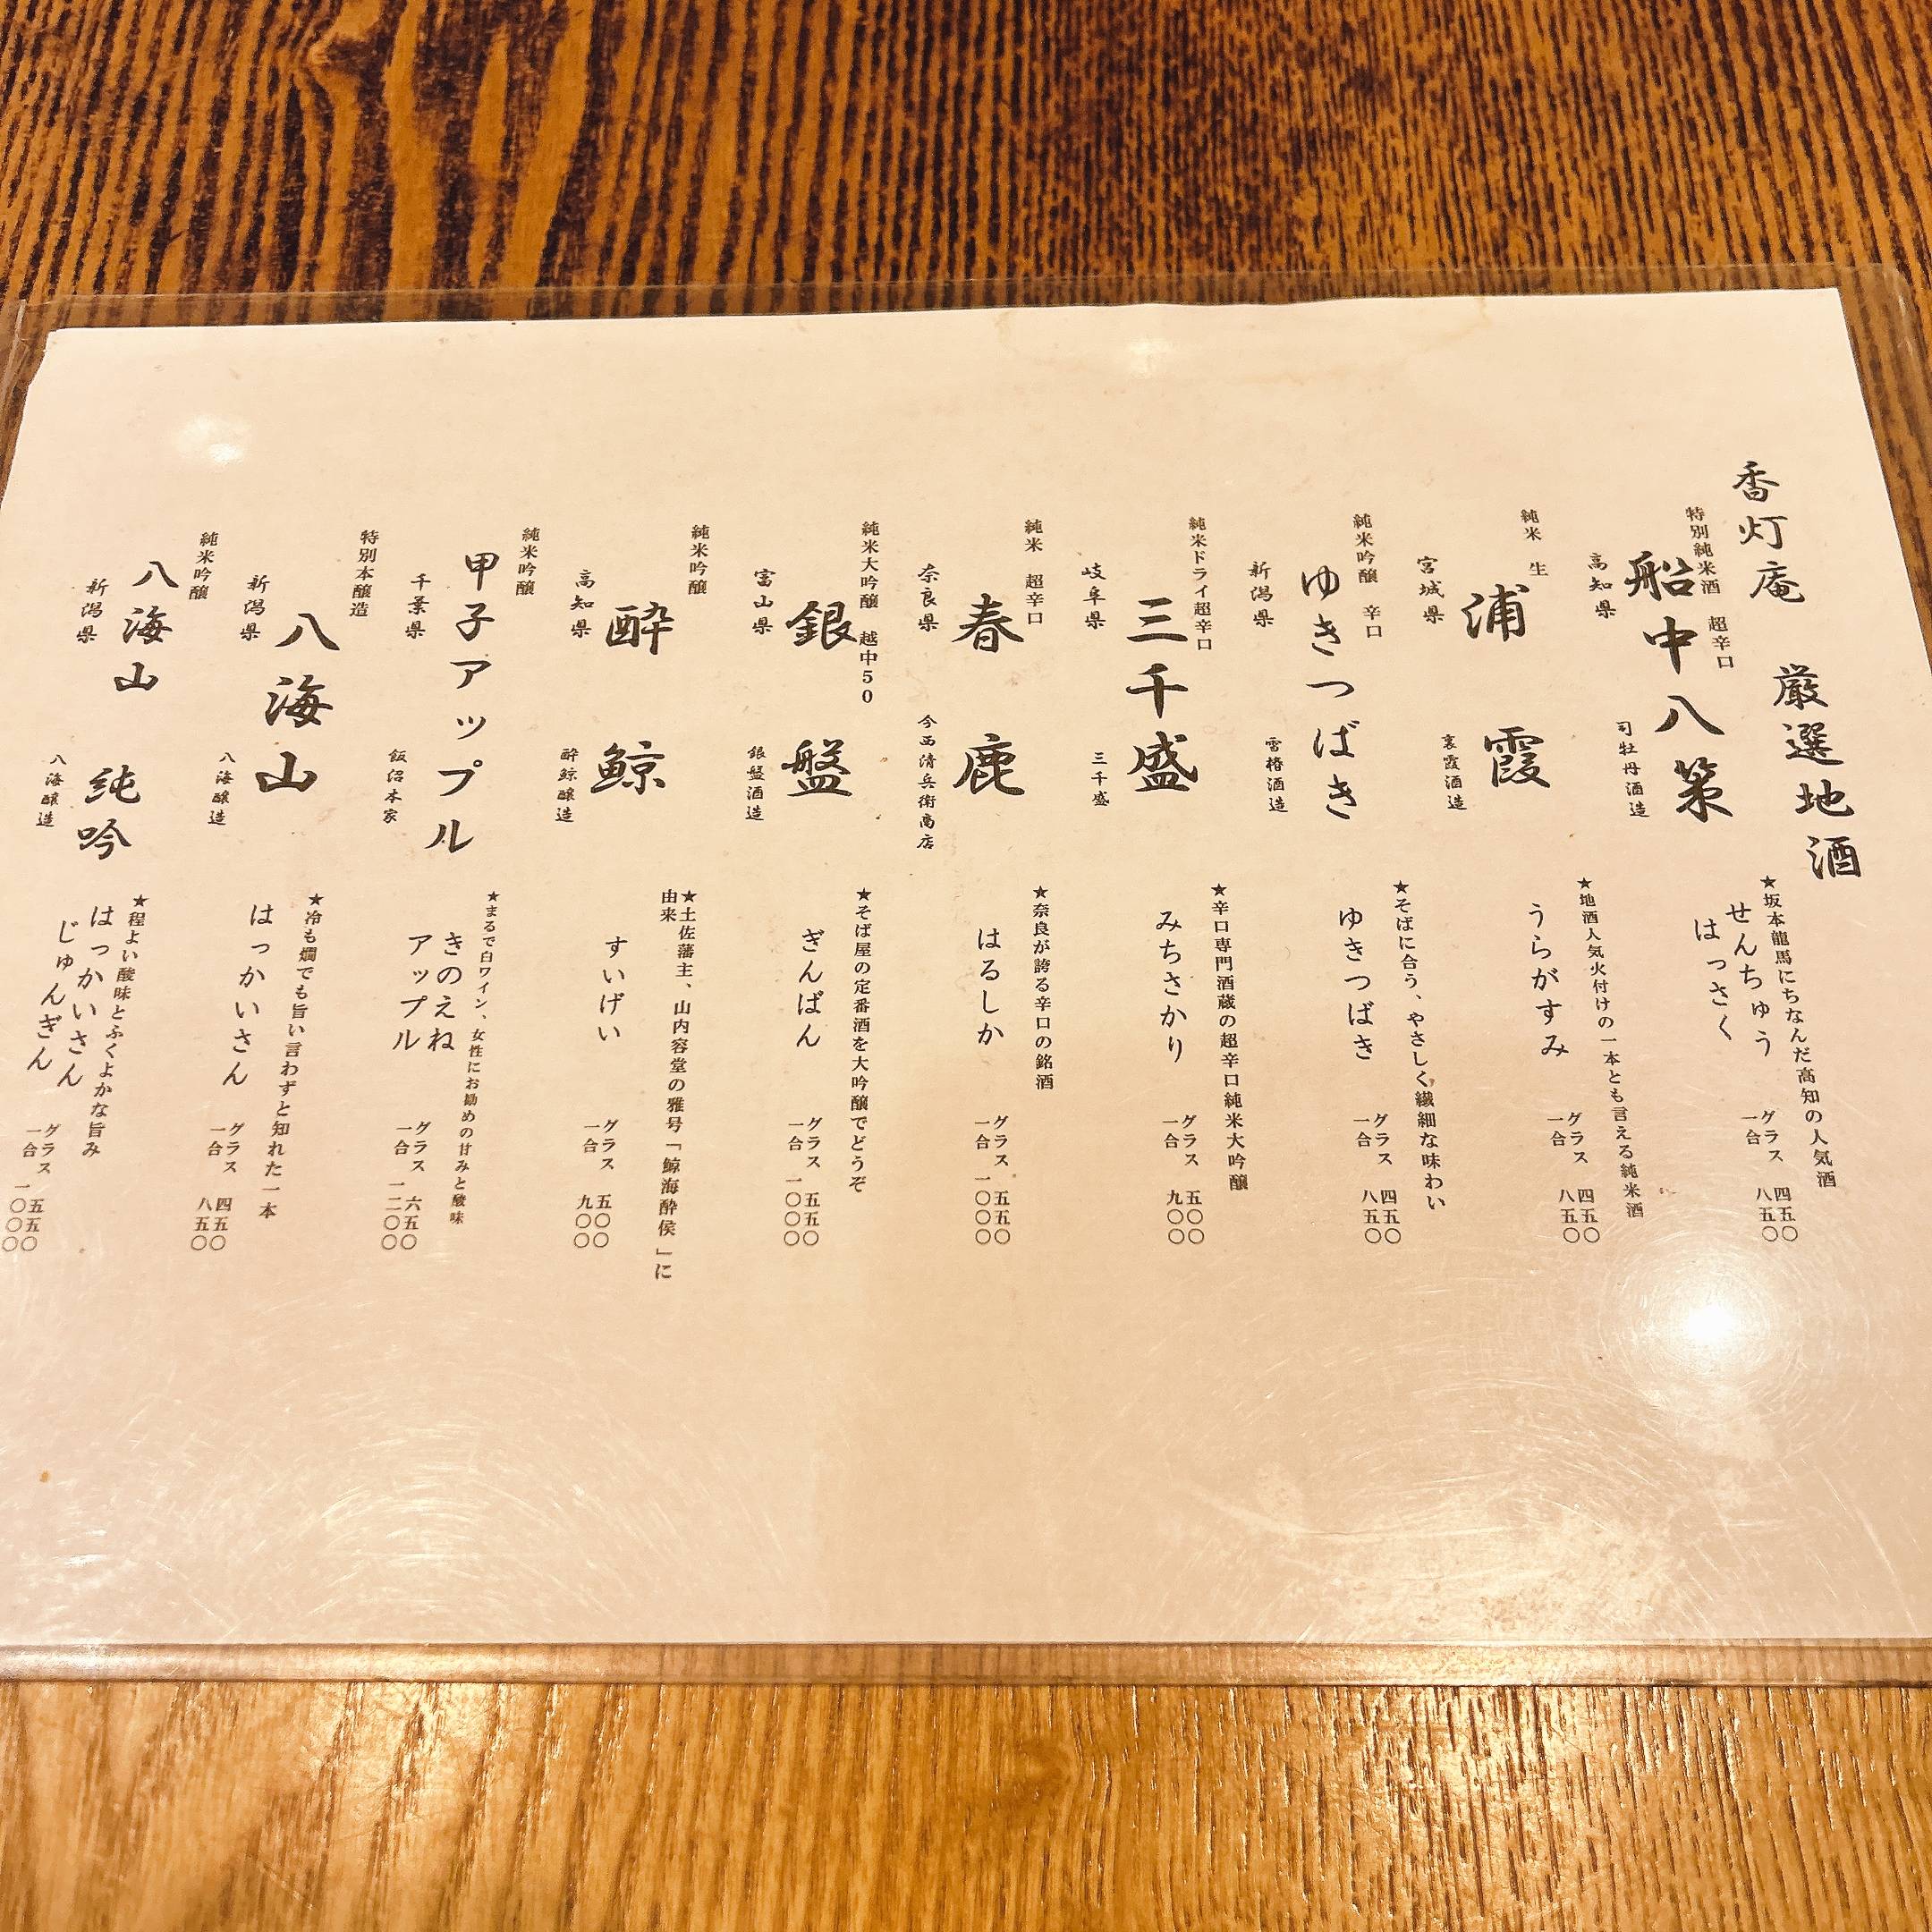 香灯庵 厳選地酒
特別純米酒 超辛口
船中八策
高知県 司牡丹酒造
★坂本龍馬にちなんだ高知の人気酒
せんちゅう
はっさく
グラス 四五〇
一合 八五〇
純米 生
浦霞
宮城県 裏霞酒造
★地酒人気火付けの一本とも言える純米酒
うらがすみ
グラス 四五〇
一合 八五〇
純米吟醸 辛口
ゆきつばき
新潟県 雪椿酒造
★そばに合う、やさしく繊細な味わい
ゆきつばき
グラス 四五〇
一合 八五〇
純米ドライ超辛口
三千盛
岐阜県 三千盛
★辛口専門酒蔵の超辛口純米大吟醸
みちさかり
グラス 五〇〇
一合 九〇〇
純米 超辛口
春鹿
奈良県 今西清兵衛商店
★奈良が誇る辛口の銘酒
はるしか
グラス 五五〇
一合 一〇〇〇
純米大吟醸 越中50
銀盤
富山県 銀盤酒造
★そば屋の定番酒を大吟醸でどうぞ
ぎんばん
グラス 五五〇
一合 一〇〇〇
純米吟醸
酔鯨
高知県 酔鯨醸造
★土佐藩主、山内容堂の雅号「鯨海酔侯」に
由来
すいげい
グラス 五〇〇
一合 九〇〇
純米吟醸
甲子アップル
千葉県 飯沼本家
★まるで白ワイン、女性にお勧めの甘みと酸味
きのえね
アップル
グラス 六五〇
一合 一二〇〇
特別本醸造
八海山
新潟県 八海醸造
★冷も燗でも旨い言わずと知れた一本
はっかいさん
グラス 四五〇
一合 八五〇
純米吟醸
八海山 純吟
新潟県 八海醸造
★程よい酸味とふくよかな旨み
はっかいさん
じゅんぎん
グラス 五五〇
一合 一〇〇〇